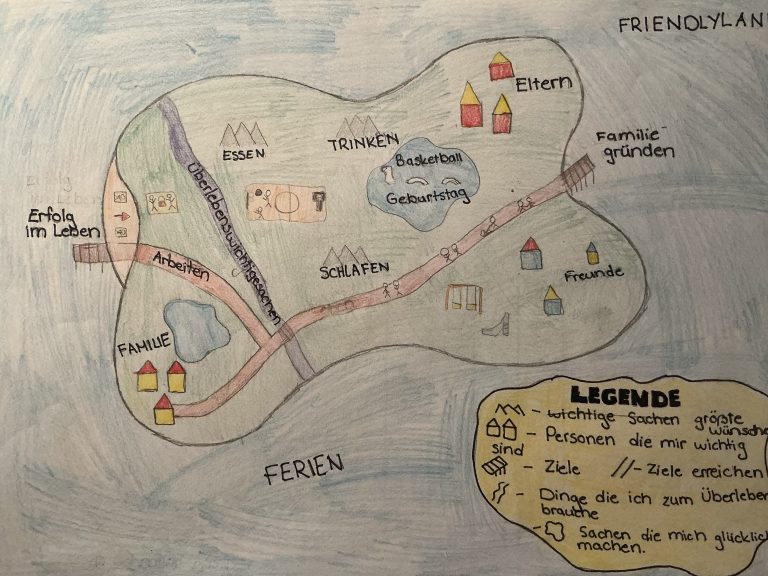 FRIENDLYLAN
Eltern
ESSEN
TRINKEN
Familie
gründen
Basketball
Geburtstag
Überlebenswichtigesachen
Erfolg
im Leben
Arbeiten
SCHLAFEN
Freunde
FAMILIE
FERIEN
LEGENDE
- wichtige Sachen größte
wünsche
- Personen die mir wichtig
sind
- Ziele // - Ziele erreichen
- Dinge die ich zum Überleben
brauche
- Sachen die mich glücklich
machen.